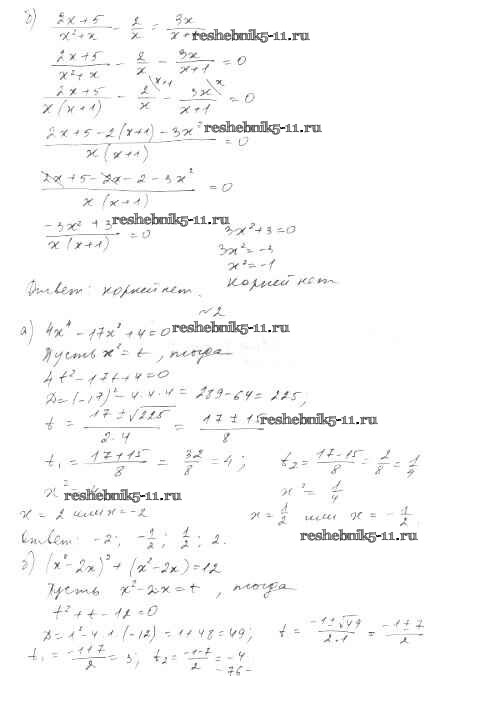 б) (2x+5)/(x²+x) - 2/x = 3x/(x+ reshebnik5-11.ru
(2x+5)/(x²+x) - 2/x - 3x/(x+1) = 0
(2x+5)/(x(x+1)) - 2/x \x+1 - 3x/(x+1) \x = 0
(2x+5-2(x+1)-3x²)/(x(x+1)) = 0 reshebnik5-11.ru
(2x+5-2x-2-3x²)/(x(x+1)) = 0
(-3x²+3)/(x(x+1)) = 0 reshebnik5-11.ru
3x²+3=0
3x²=-3
x²=-1
корней нет
Ответ: корней нет.
№2
а) 4x⁴-17x²+4=0 reshebnik5-11.ru
Пусть x²=t, тогда
4t²-17t+4=0
D=(-17)²-4·4·4=289-64=225,
t = (17±√225)/(2·4) = (17±15)/8 reshebnik5-11.ru
t₁ = (17+15)/8 = 32/8 = 4; t₂ = (17-15)/8 = 2/8 = 1/4
x² reshebnik5-11.ru x² = 1/4
x = 2 или x = -2 x = 1/2 или x = -1/2.
reshebnik5-11.ru
Ответ: -2; -1/2; 1/2; 2.
(x²-2x)²+(x²-2x)=12
Пусть x²-2x=t, тогда
t²+t-12=0
D=1²-4·1·(-12)=1+48=49; t = (-1±√49)/(2·1) = (-1±7)/2
t₁ = (-1+7)/2 = 3; t₂ = (-1-7)/2 = -4
-76-